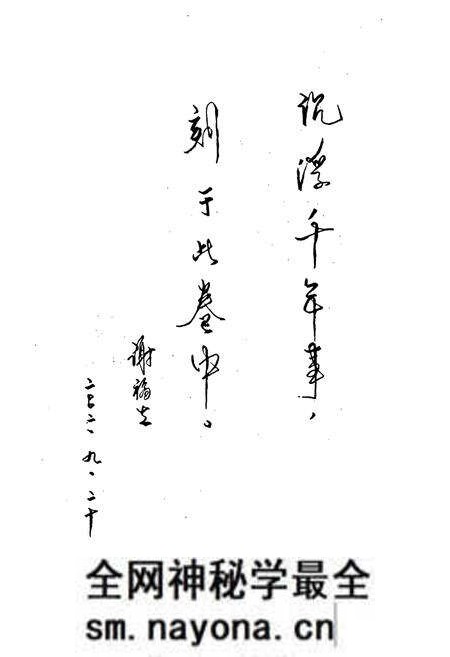 沉浮千年事，
刻于此卷中。
谢福
九．二十
全网神秘学最全
sm.nayona.cn